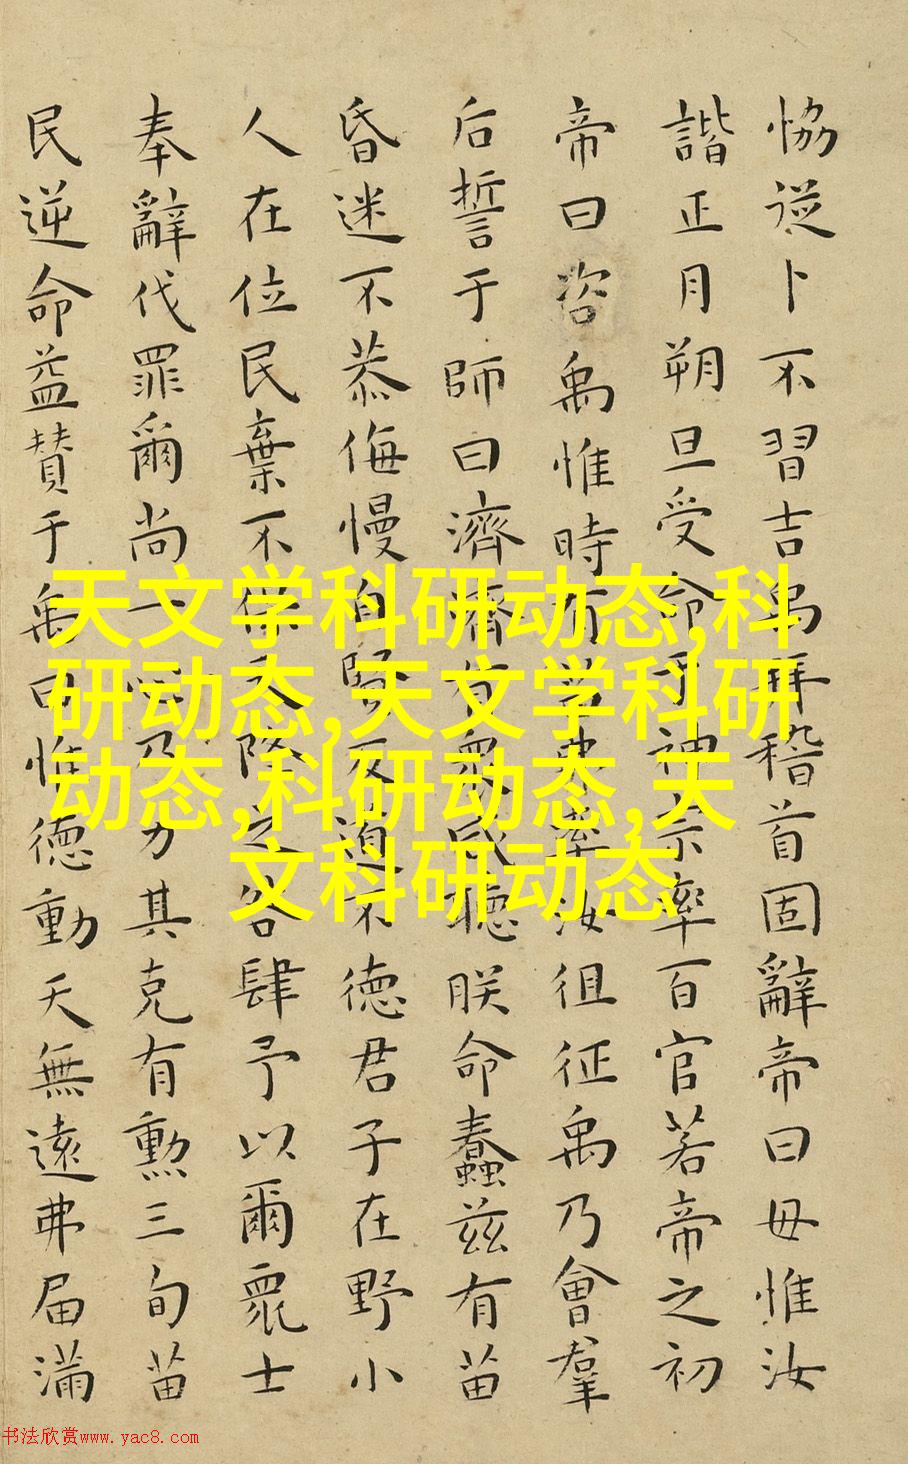 恊従卜不習吉禹拜稽首固辭帝曰毋惟汝
諧正月朔旦受命于神宗率百官若帝之初
帝曰咨禹惟時有苗弗率汝徂征禹乃會羣
后誓于師曰濟濟有衆咸聽朕命蠢茲有苗
昏迷不恭侮慢自賢反道不徳君子在野小
人在位民棄不保天降之咎肆予以爾衆士
奉辭伐罪爾尚一心乃力其克有勲三旬苗
民逆命益賛于禹曰惟徳動天無遠弗届滿
天文学科研动态,科
研动态,天文学科研
动态,科研动态,天
文科研动态
书法欣赏www.yac8.com